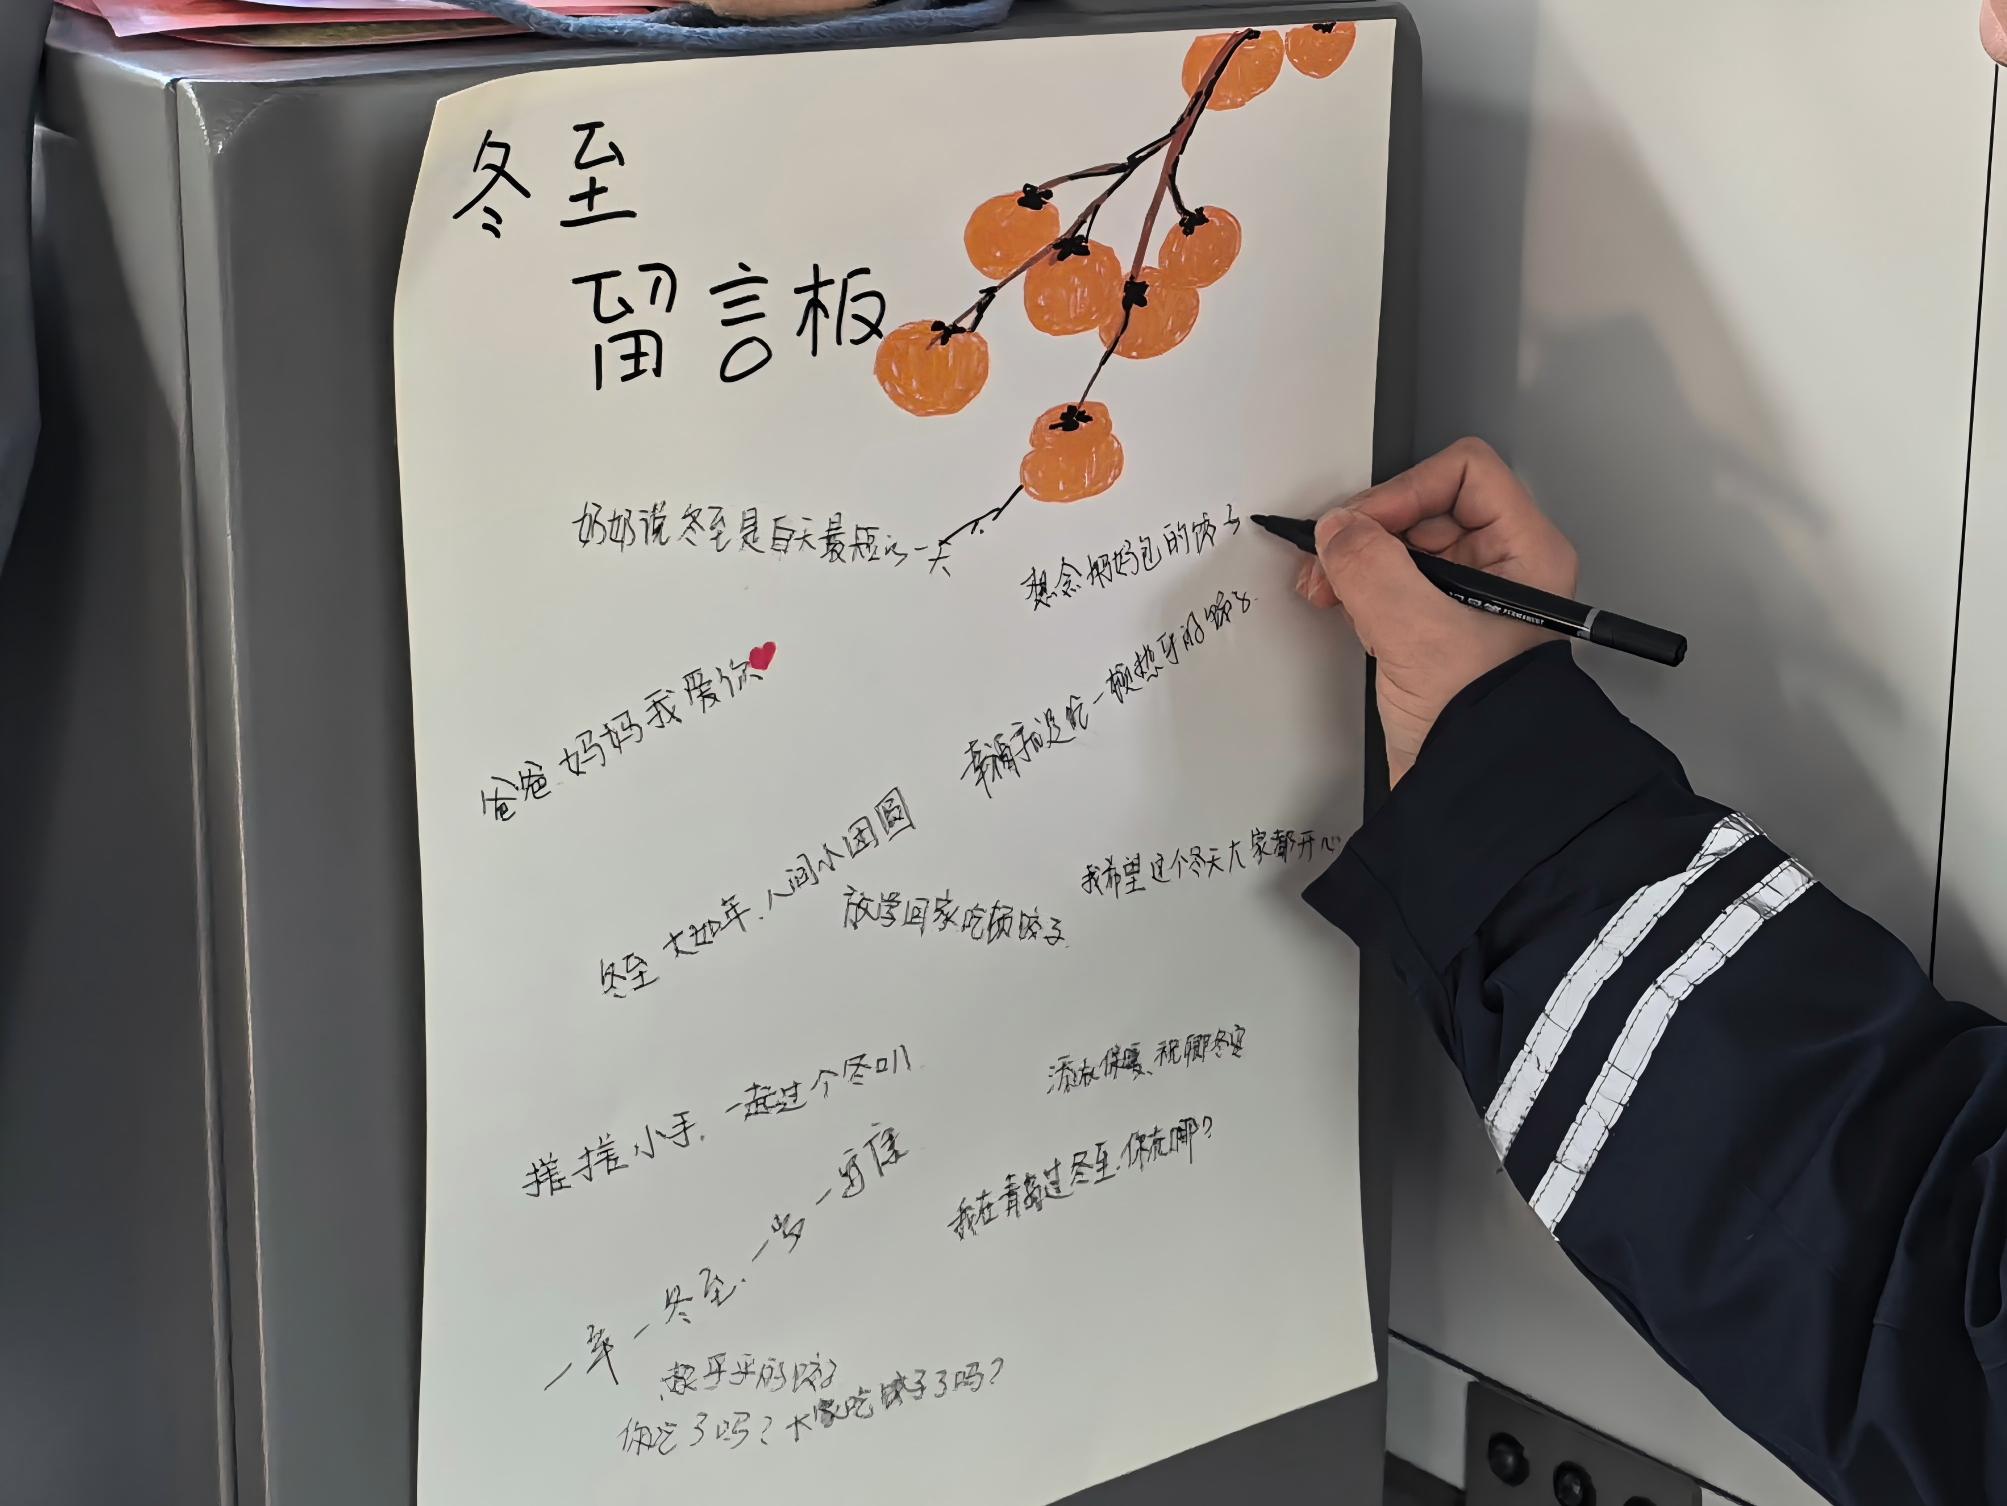 冬至
留言板
奶奶说冬至是白天最短的一天
想念妈妈包的饺子
爸爸妈妈我爱你
幸福就是吃一顿热乎的饺子
冬至大如年，人间小团圆
放学回家吃顿饺子
我希望这个冬天大家都开心
搓搓小手，一起过个冬叭
添衣保暖，祝卿冬安
我在青岛过冬至，你在哪？
一年一冬至，一岁一安康
热乎乎的饺子
你吃了吗？大家吃饺子了吗？